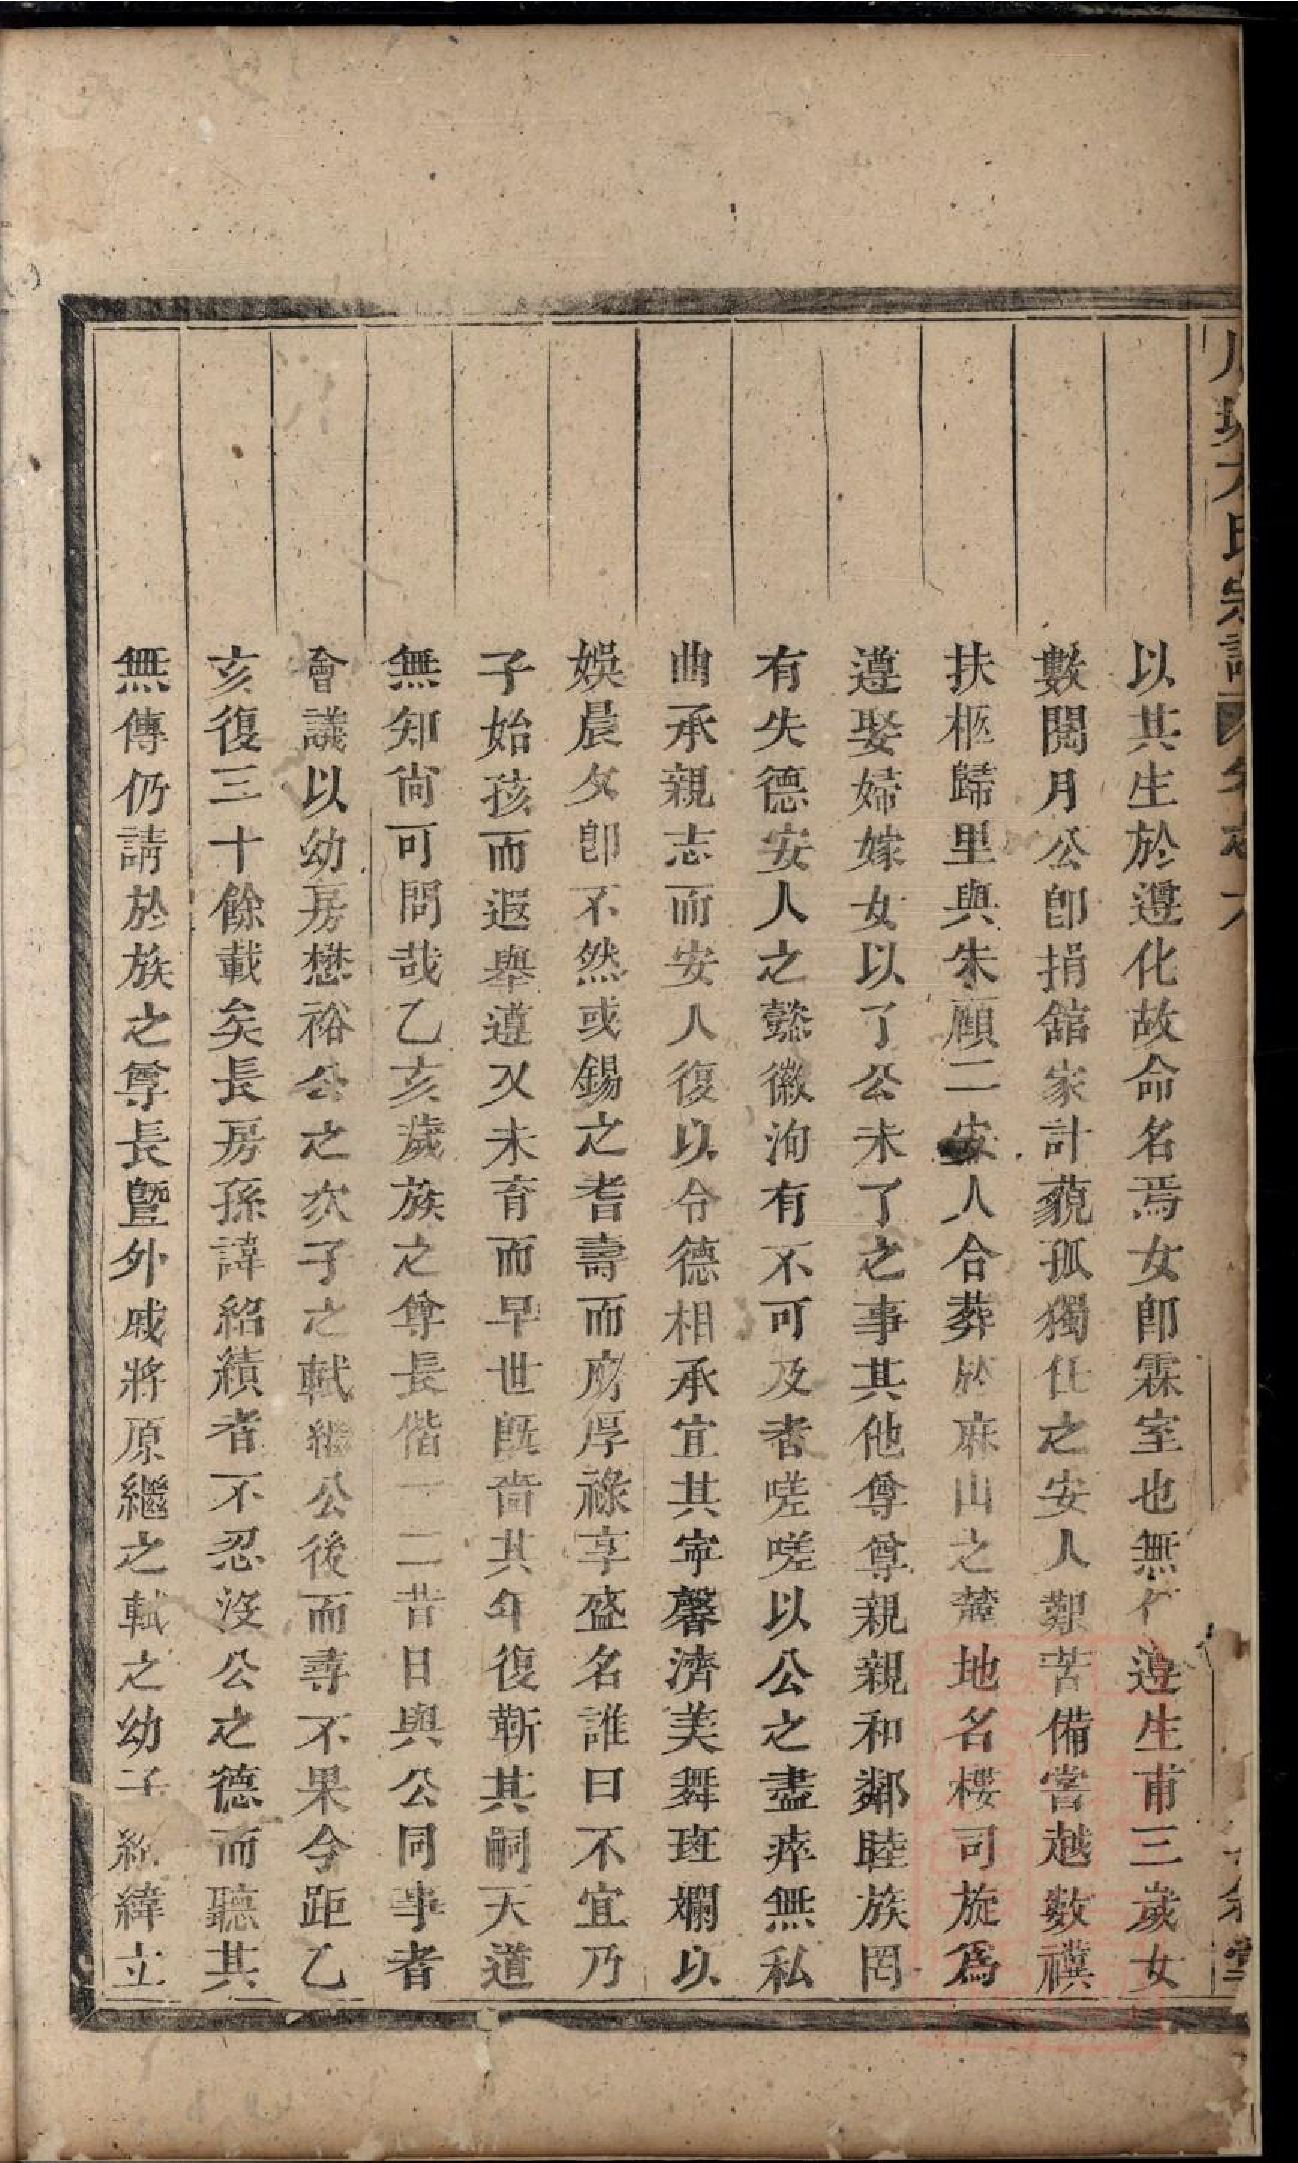 氏宗譜
以其生於遵化故命名焉女卽霖室也無何遵生甫三歲女
數閱月公卽捐舘家計藐孤獨任之安人艱苦備嘗越數禩
扶柩歸里與朱顧二安人合葬於麻山之麓地名樓司旋爲
遵娶婦嫁女以了公未了之事其他尊尊親親和鄰睦族罔
有失德安人之懿徽洵有不可及者嗟嗟以公之盡瘁無私
曲承親志而安人復以令德相承宜其寧馨濟美舞斑斕以
娛晨夕卽不然或錫之耆壽而膺厚祿享盛名誰曰不宜乃
子始孩而遐舉遵又未育而早世旣嗇其年復靳其嗣天道
無知尙可問哉乙亥歲族之尊長偕一二昔日與公同事者
會議以幼房懋裕公之次子之軾繼公後而尋不果今距乙
亥復三十餘載矣長房孫諱紹績者不忍沒公之德而聽其
無傳仍請於族之尊長曁外戚將原繼之軾之幼子緯立